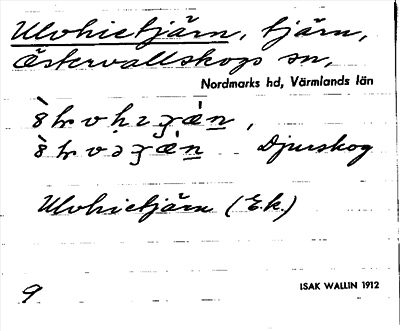 Ulvhietjärn, tjärn,
Östervallskogs sn,
Nordmarks hd, Värmlands län
Djurskog
Ulvhietjärn (E.k.)
9
ISAK WALLIN 1912